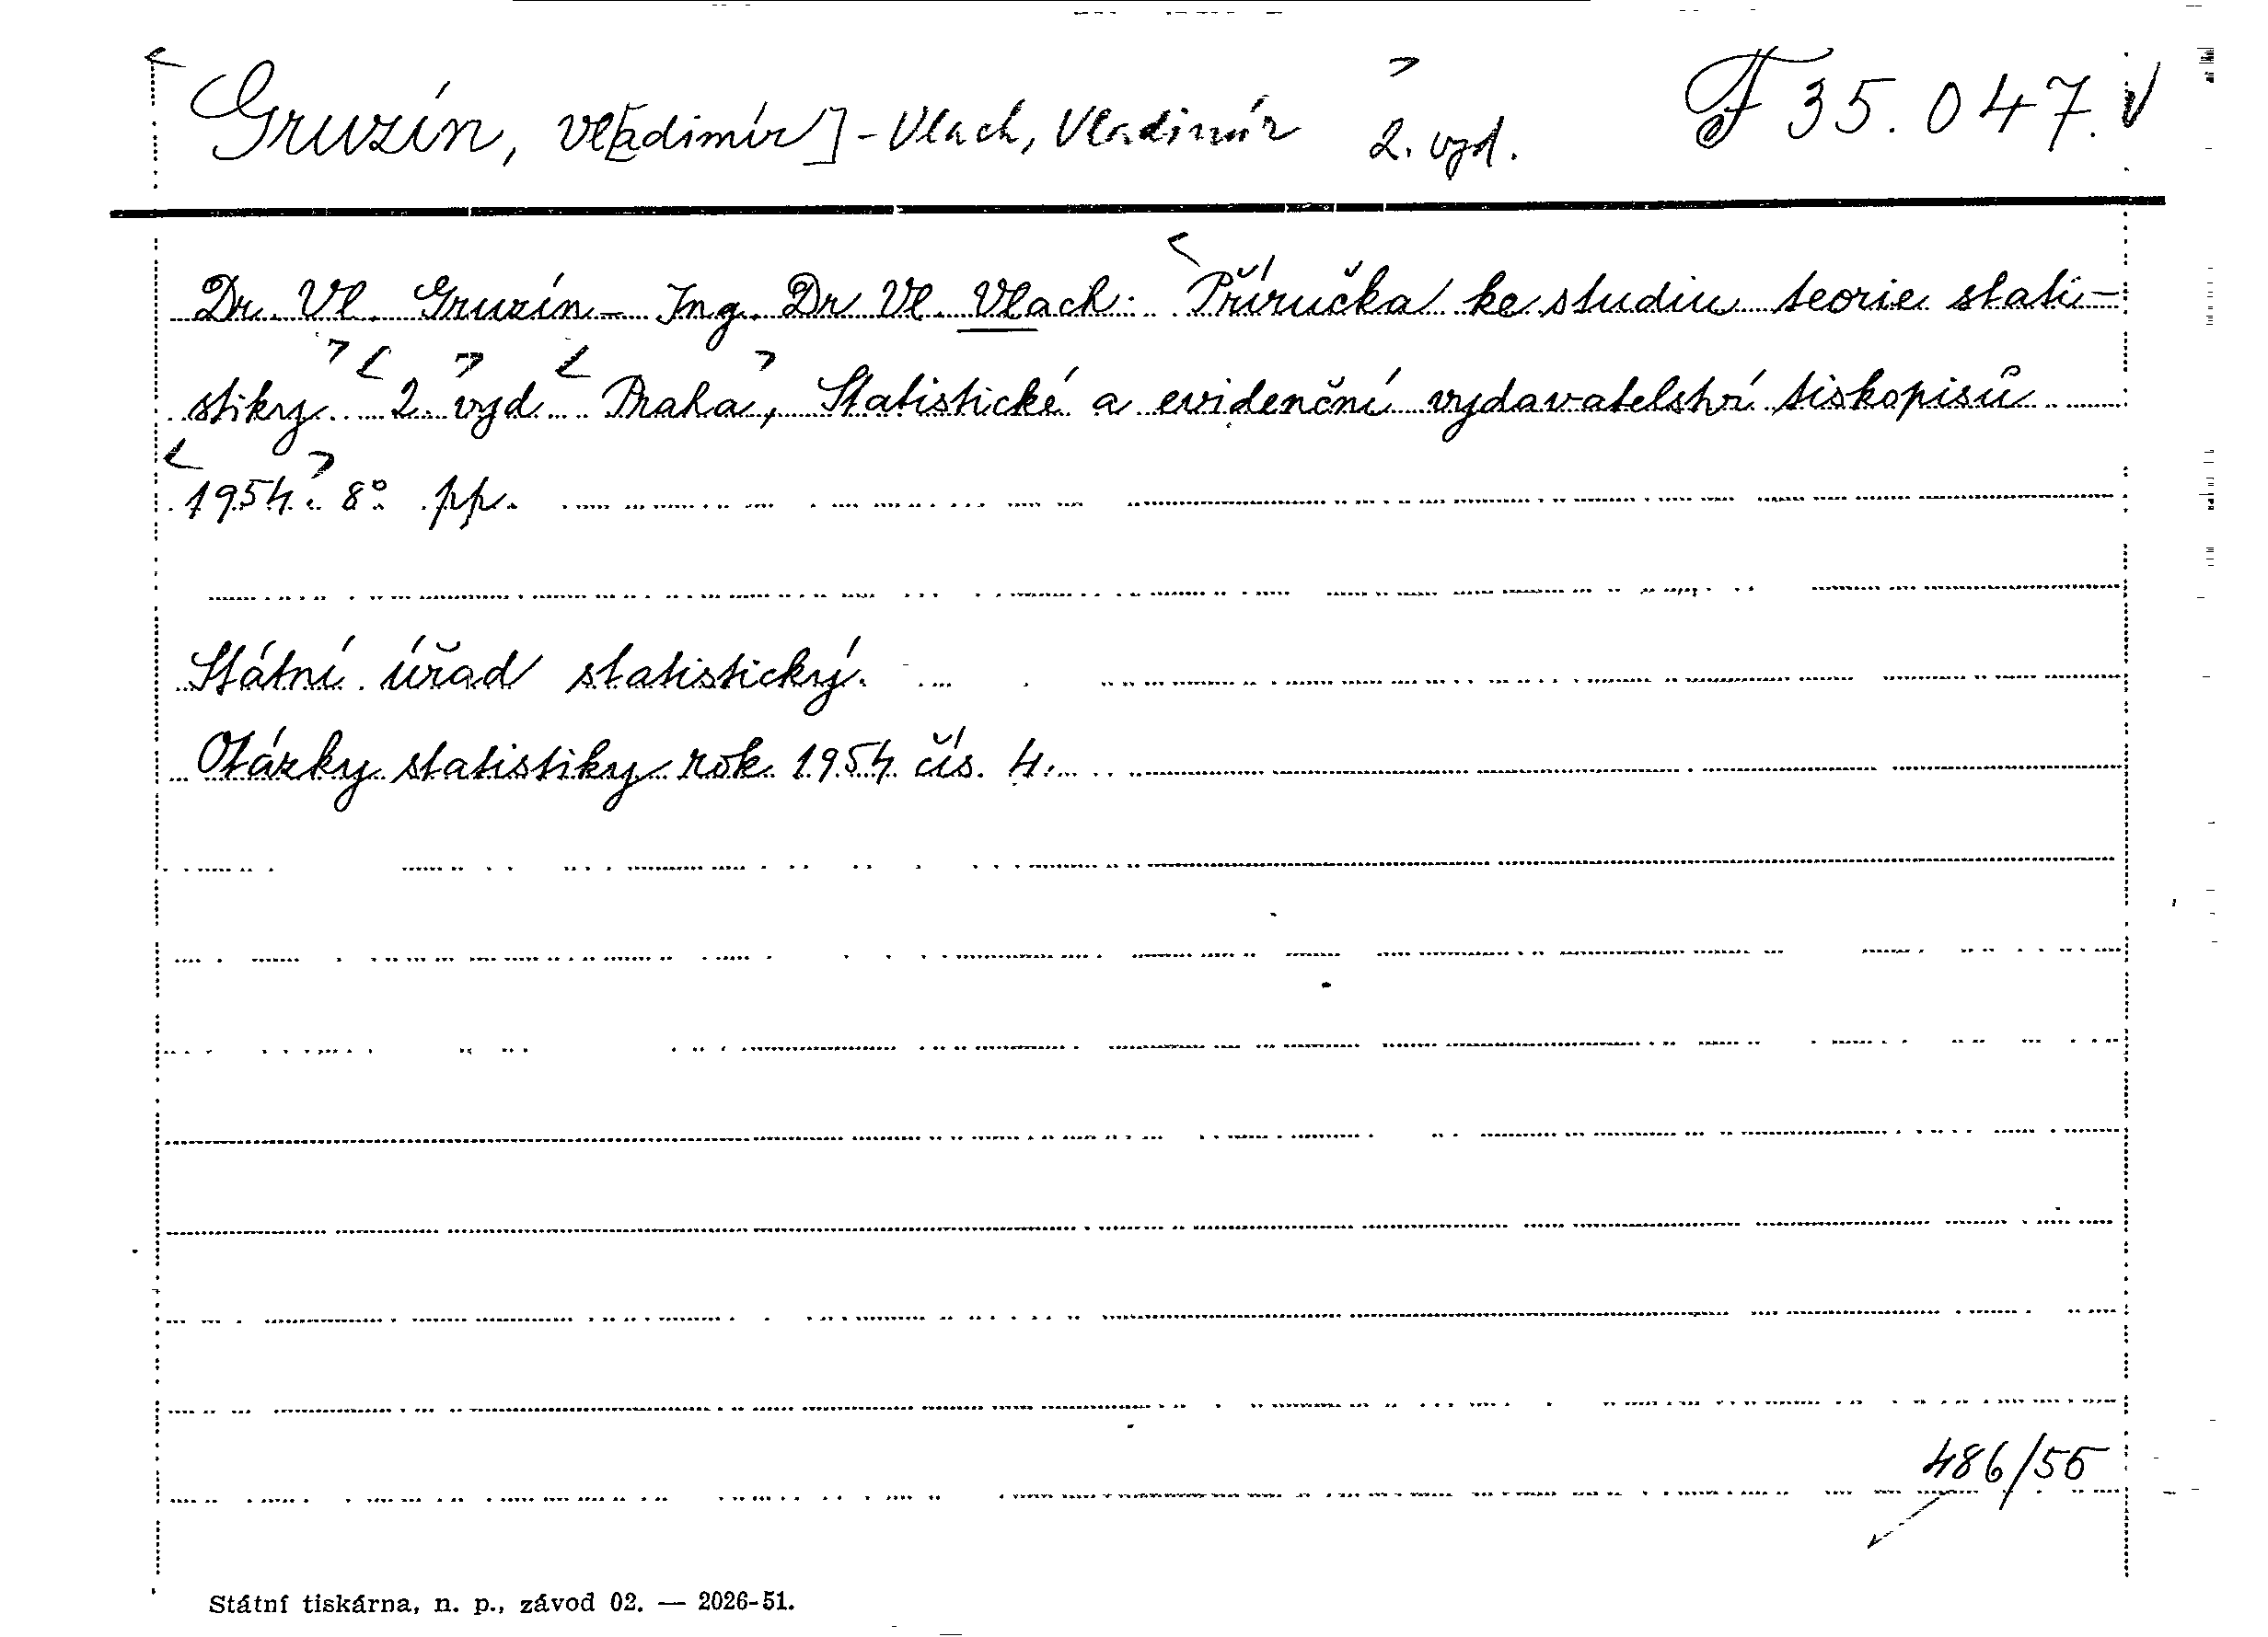 Gruzín, Vl[adimír] - Vlach, Vladimír 2. vyd. F 35.047.
Dr. Vl. Gruzín - Ing. Dr Vl. Vlach: Příručka ke studiu teorie stati-
stiky. 2. vyd. Praha, Statistické a evidenční vydavatelství tiskopisů
1954. 8° pp.
Státní úřad statistický.
Otázky statistiky rok 1954 čís. 4.
486/55
Státní tiskárna, n. p., závod 02. — 2026-51.